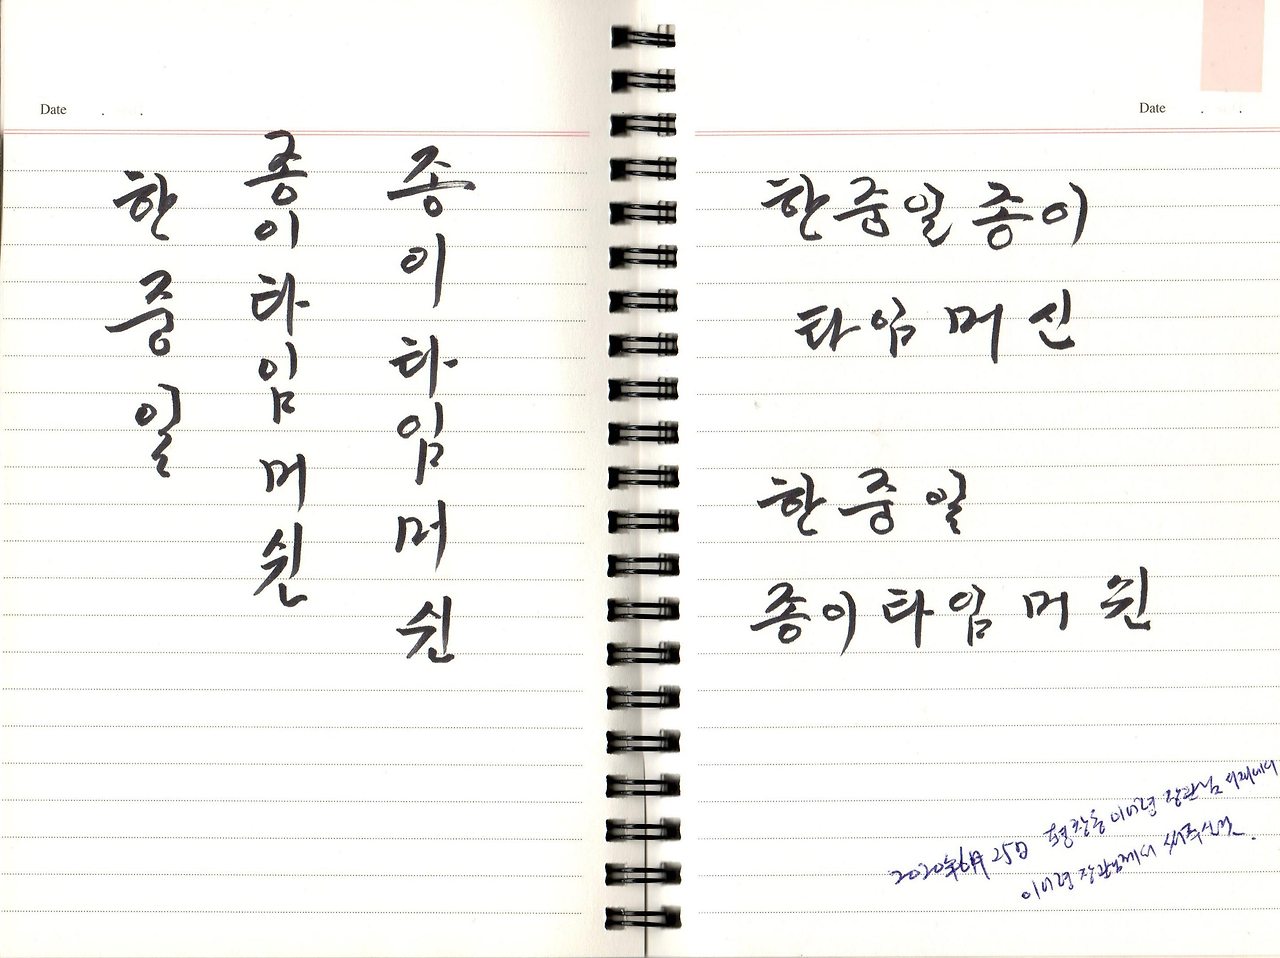 Date . .
한중일
종이타임머쉰
종이타임머쉰
Date . .
한중일종이
타임머신
한중일
종이타임머쉰
2020年6月25日 평창동 이어령 장관님 서재에서
이어령 장관님께서 써주시다.